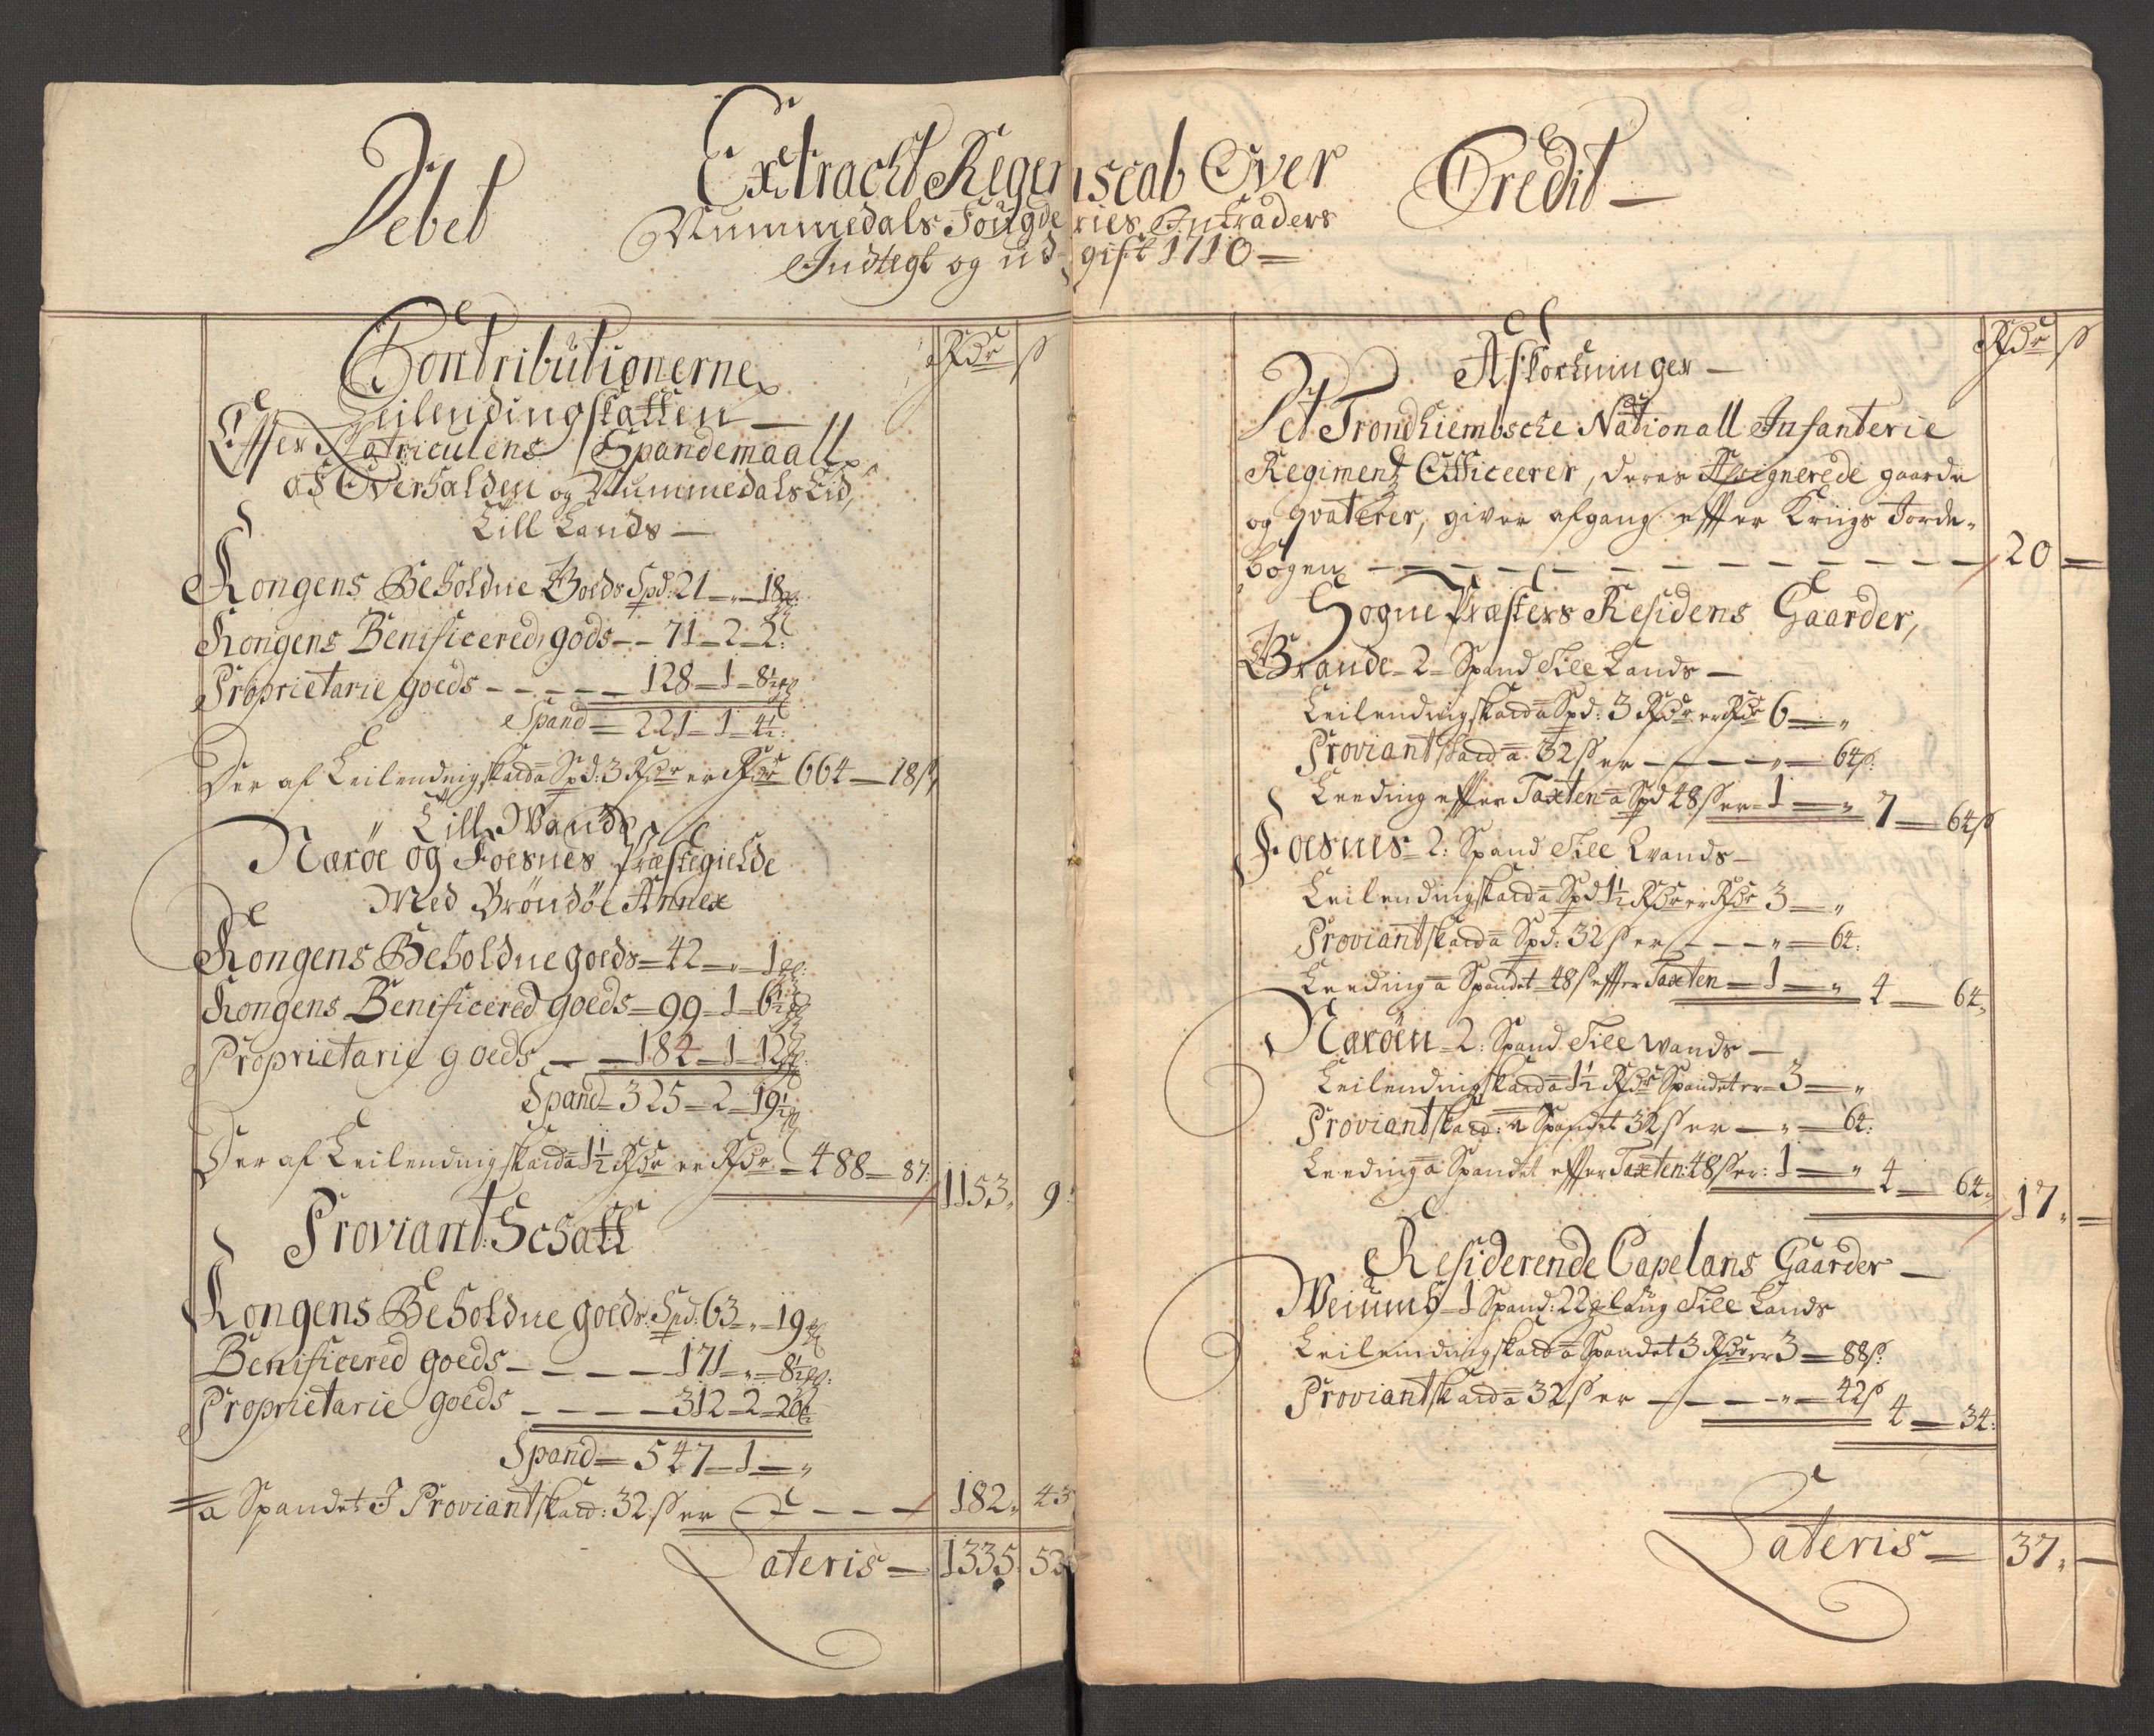 Debet
Extract Regenscab Over
Nummedals Fougderies Intraders
Indtegt og udgift 1710
Credit
Contributionerne
Rdr ß
Leilendingskatten
Effter Matriculens Spandemaall
af Overhalden og Nummedals Lid,
Till Lands
Kongens Beholdne Goeds Spd: 21 - " - 18 ml:
Kongens Benificered gods - - 71 - 2 - 2:
Proprietarie goeds - - - - - 128 - 1 - 8½ ml
Spand = 221 - 1 - 4½:
Der af Leilendingskatd a Spd: 3 Rdr er Rdr 664 - 18 ß
Till Wands
Nærøe og Foesnes Præstegielde
Med Brøndøe Annex
Kongens Beholdne goeds = 42 - " - 1 ml:
Kongens Benificered goeds = 99 - 1 - 6½ ml
Proprietarie goeds - - 182 - 1 - 12 ml:
Spand = 325 - 2 - 19½ ml
Der af Leilendingskatd a 1½ Rdr er Rdr - 488 - 87: 1153 " 9:
Proviant Schatt
Kongens Beholdne goeds Spd: 63 - " - 19 ml
Benificered goeds - - - - 171 - " - 8½ ml:
Proprietarie goeds - - - - 312 - 2 - 20½
Spand = 547 - 1 - "
a Spandet I Proviantskatd: 32 ß er - - - - 182 " 43
Lateris = 1335 52
Rdr ß
Afkortninger
Det Trondhiembsche Nationall Infanterie
Regimentz Officeerer, deres Assignerede gaarde
og qvaterer, giver afgang effter Krigs Jorde-
bogen - - - - - - - - - - - 20 =
Sogne Præsters Residens Gaarder,
Grande - 2 - Spand Till Lands
Leilendingskatd a Spd: 3 Rdr er Rdr 6 - "
Proviantskatd a 32 ß er - - - - " = 64 ß:
Leeding effter Taxten a Spd 48 ß er - 1 - " 7 - 64 ß
Foesnes - 2: Spand Till Wands
Leilendingskatd a Spd 1½ Rdr er Rdr 3 - "
Proviantskatd a Spd: 32 ß er - - - " = 64:
Leeding a Spandet 48 ß effter Taxten - 1 - " 4 - 64
Nærøen - 2: Spand Till Wands
Leilendingskatd a 1½ Rdr Spandet er - 3 - "
Proviantskatd: a Spandet 32 ß er - " - 64:
Leeding a Spandet effter Taxten 48 ß er: 1 - " 4 - 64 17 " =
Residerende Capelans Gaarder
Weiumb - 1 Spand: 22 laug Till Lands
Leilendingskatd a Spandet 3 Rdr er 3 = 88 ß:
Proviantskatd a 32 ß er - - - - " = 42 ß 4 - 34:
Lateris = 37 " -